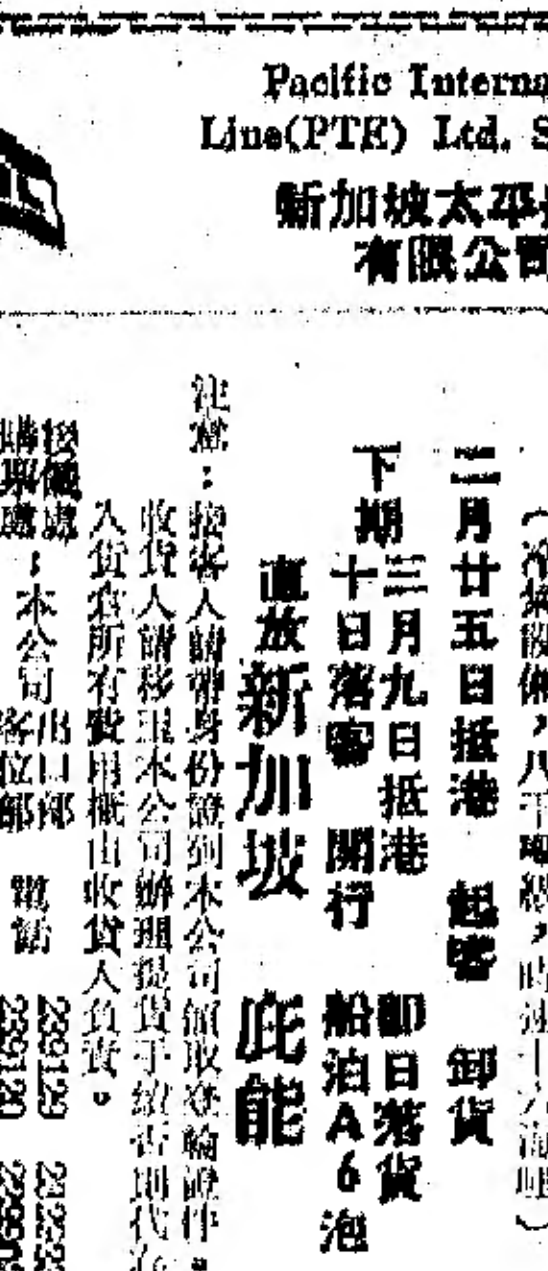 Pacific Interna
Line(PTE) Ltd. S
新加坡太平
有限公司
(冷氣設備,八千噸級,時速十六海哩)
二月廿五日抵港 起客 卸貨
下期 三月九日抵港 卽日落貨
十日落客 開行 船泊A6泡
直放新加坡 庇能
注意:接客人請帶身份證到本公司領取登輪證件。
收貨人請移玉本公司辦理提貨手續否則代存
入貨倉所有費用概由收貨人負責。
接儎處 出口部 239129
購票處:本公司 客位部 電話 239129